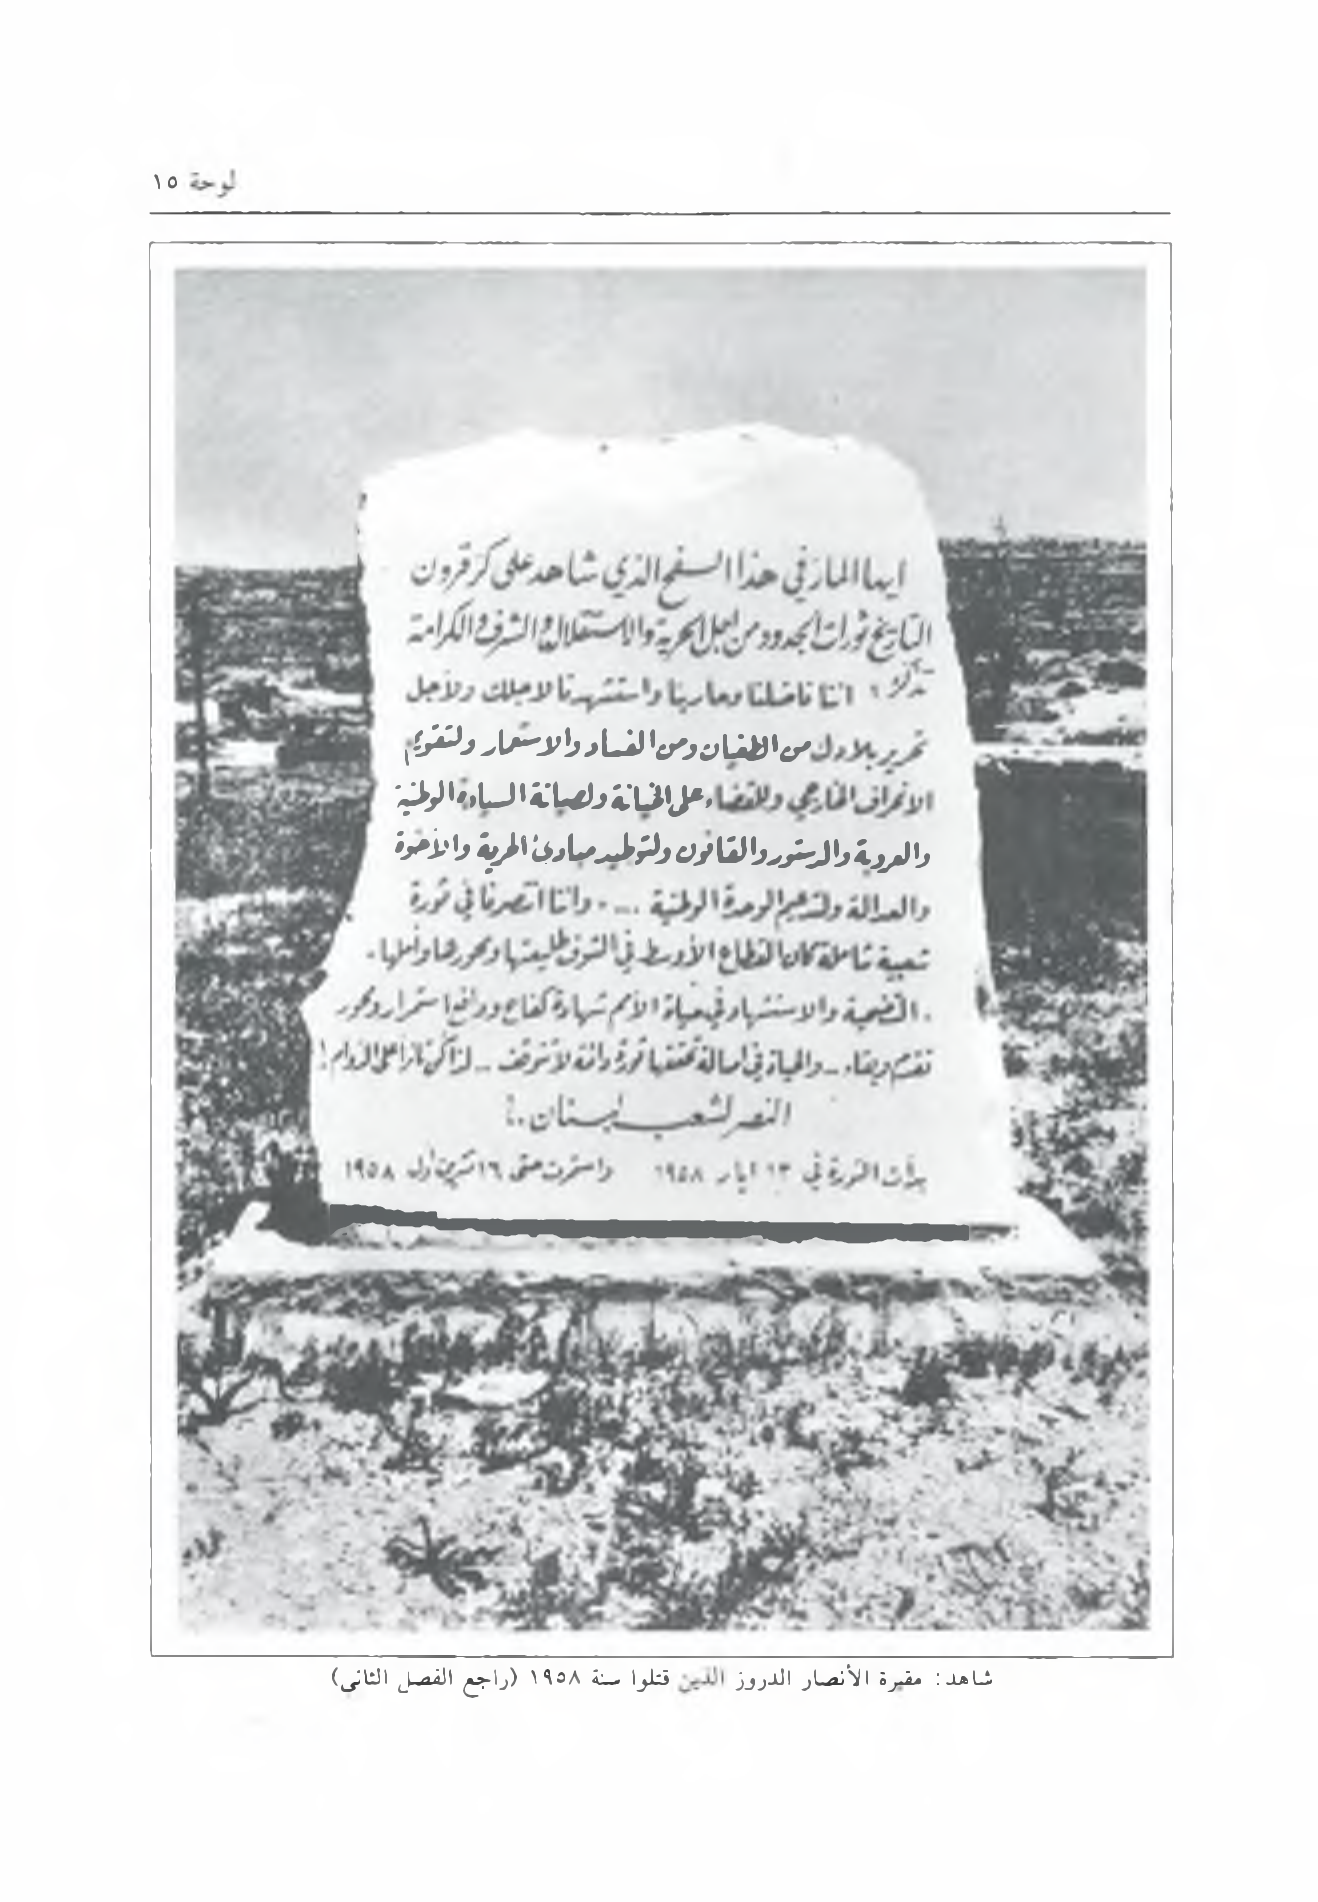 لوحة ١٥
ايها المار في هذا السفح الذي شاهد على كر قرون
التاريخ ثورات الجدود من اجل الحرية والاستقلال والشرف والكرامة
تذكر، اننا ناضلنا وحاربنا واستشهدنا لاجلك ولأجل
تحرير بلادك من الطغيان ومن الفساد والاستعمار ولتقويم
الانحراف الخارجي وللقضاء على الخيانة ولصيانة السيادة الوطنية
والعروبة والدستور والقانون ولتوطيد مبادئ الحرية والأخوة
والعدالة ولتدعيم الوحدة الوطنية .... واننا انتصرنا في ثورة
شعبية شاملة كان القطاع الأوسط في الشوف طليعتها ومحورها وأملها.
. التضحية والاستشهاد في حياة الأمم شهادة كفاح ودافع استمرار ومحور
تقدم وبقاء .. والحياة في اصالة تحققها ثورة دائمة لا تتوقف .. لذا كن ثائرا على الدوام!
النصر لشعب لبنان .!
بدأت الثورة في ١٣ ايار ١٩٥٨ واستمرت حتى ١٦ تشرين أول ١٩٥٨
شاهد: مقبرة الأنصار الدروز الذين قتلوا سنة ١٩٥٨ (راجع الفصل الثاني)